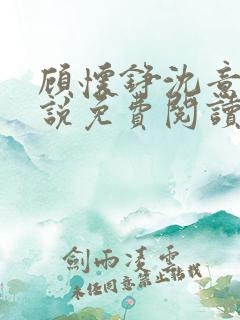 顾懷錚沈意
說免費閱讀
劍雨凌雲
未任同意禁止转载